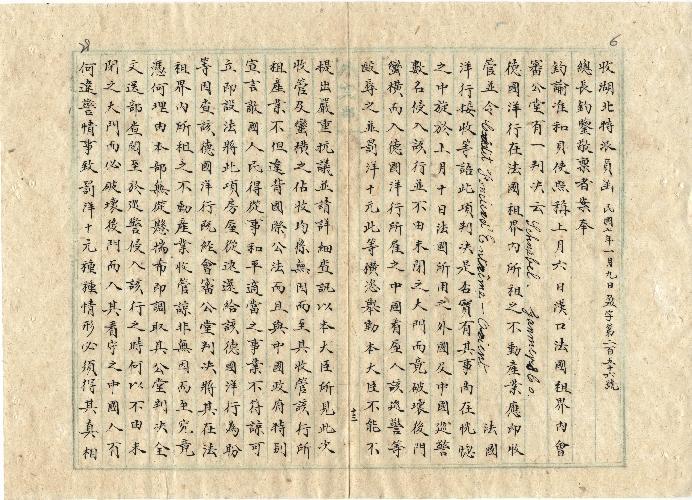 收湖北特派員函 民國七年一月九日盈字第二百五十六號
總長鈞鑒敬稟者案奉
鈞諭准和貝使照稱上月六日漢口法國租界內會
審公堂有一判決云Schnabel, Gaumer & Co.
德國洋行在法國租界內所租之不動產業應即收
管並令 法國
洋行接收等語此項判決是否實有其事尚在恍惚
之中旋於上月十日法國所用之外國及中國巡警
數名侵入該行並不由未閉之大門而竟破壞後門
蠻橫而入德國洋行所雇之中國看屋人該巡警等
毆辱之並罰洋十元此等橫恣舉動本大臣不能不
提出嚴重抗議並請詳細查訊以本大臣所見此次
收管及蠻橫之佔收均係無因而至其收管該行所
租產業不但違背國際公法而且與中國政府特別
宣言敵國人民得從事和平適當之事業不符諒可
立即設法將此項房屋從速還給該德國洋行為盼
等因查該德國洋行既經會審公堂判決將其在法
租界內所租之不動產業收管諒非無因而至究竟
憑何理由本部無從懸揣希即調取其公堂判決全
文送部查閱至於巡警侵入該行之時何以不由未
閉之大門而必破壞後門而入其看守之中國人有
何違警情事致罰洋十元種種情形必須得其真相
十三
6
8